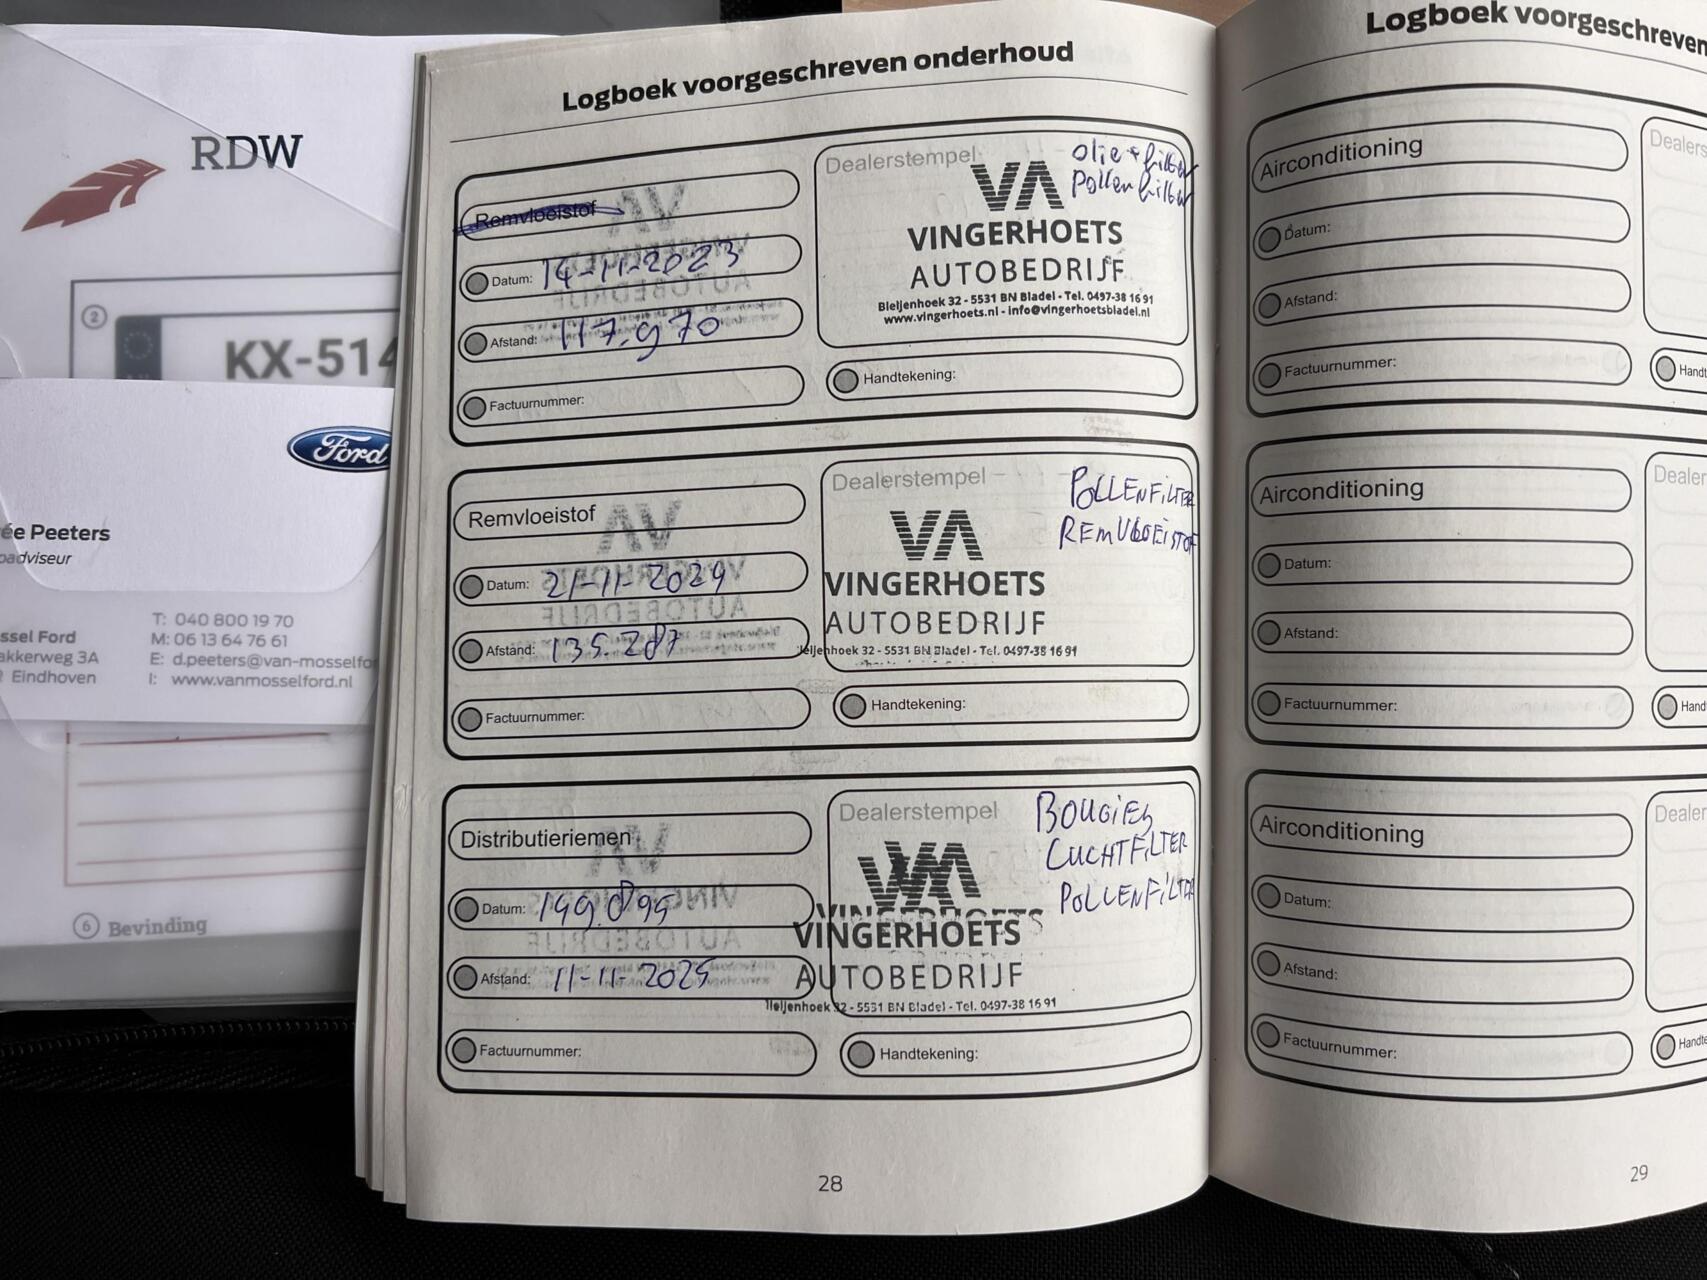 RDW
2
KX-514
Ford
ée Peeters
oadviseur
ssel Ford
akkerweg 3A
Eindhoven
T: 040 800 19 70
M: 06 13 64 76 61
E: d.peeters@van-mosselfo
I: www.vanmosselford.nl
6 Bevinding
Logboek voorgeschreven onderhoud
Remvloeistof
Datum: 14-11-2023
Afstand: 117.970
Factuurnummer:
Dealerstempel
olie + filter
Pollenfilter
VA
VINGERHOETS
AUTOBEDRIJF
Bleijenhoek 32 - 5531 BN Bladel - Tel. 0497-38 16 91
www.vingerhoets.nl - info@vingerhoetsbladel.nl
Handtekening:
Remvloeistof
Datum: 21-11-2024
Afstand: 135.287
Factuurnummer:
Dealerstempel
POLLENFILTER
REMVLOEISTOF
VA
VINGERHOETS
AUTOBEDRIJF
leijenhoek 32 - 5531 BN Bladel - Tel. 0497-38 16 91
Handtekening:
Distributieriemen
Datum: 149.099
Afstand: 11-11-2025
Factuurnummer:
Dealerstempel
BOUGIES
LUCHTFILTER
POLLENFILTER
VA
VINGERHOETS
VINGERHOETS
AUTOBEDRIJF
Bleijenhoek 32 - 5531 BN Bladel - Tel. 0497-38 16 91
Handtekening:
28
Logboek voorgeschreven
Airconditioning
Datum:
Afstand:
Factuurnummer:
Dealers
Handt
Airconditioning
Datum:
Afstand:
Factuurnummer:
Dealer
Hand
Airconditioning
Datum:
Afstand:
Factuurnummer:
Dealer
Handte
29